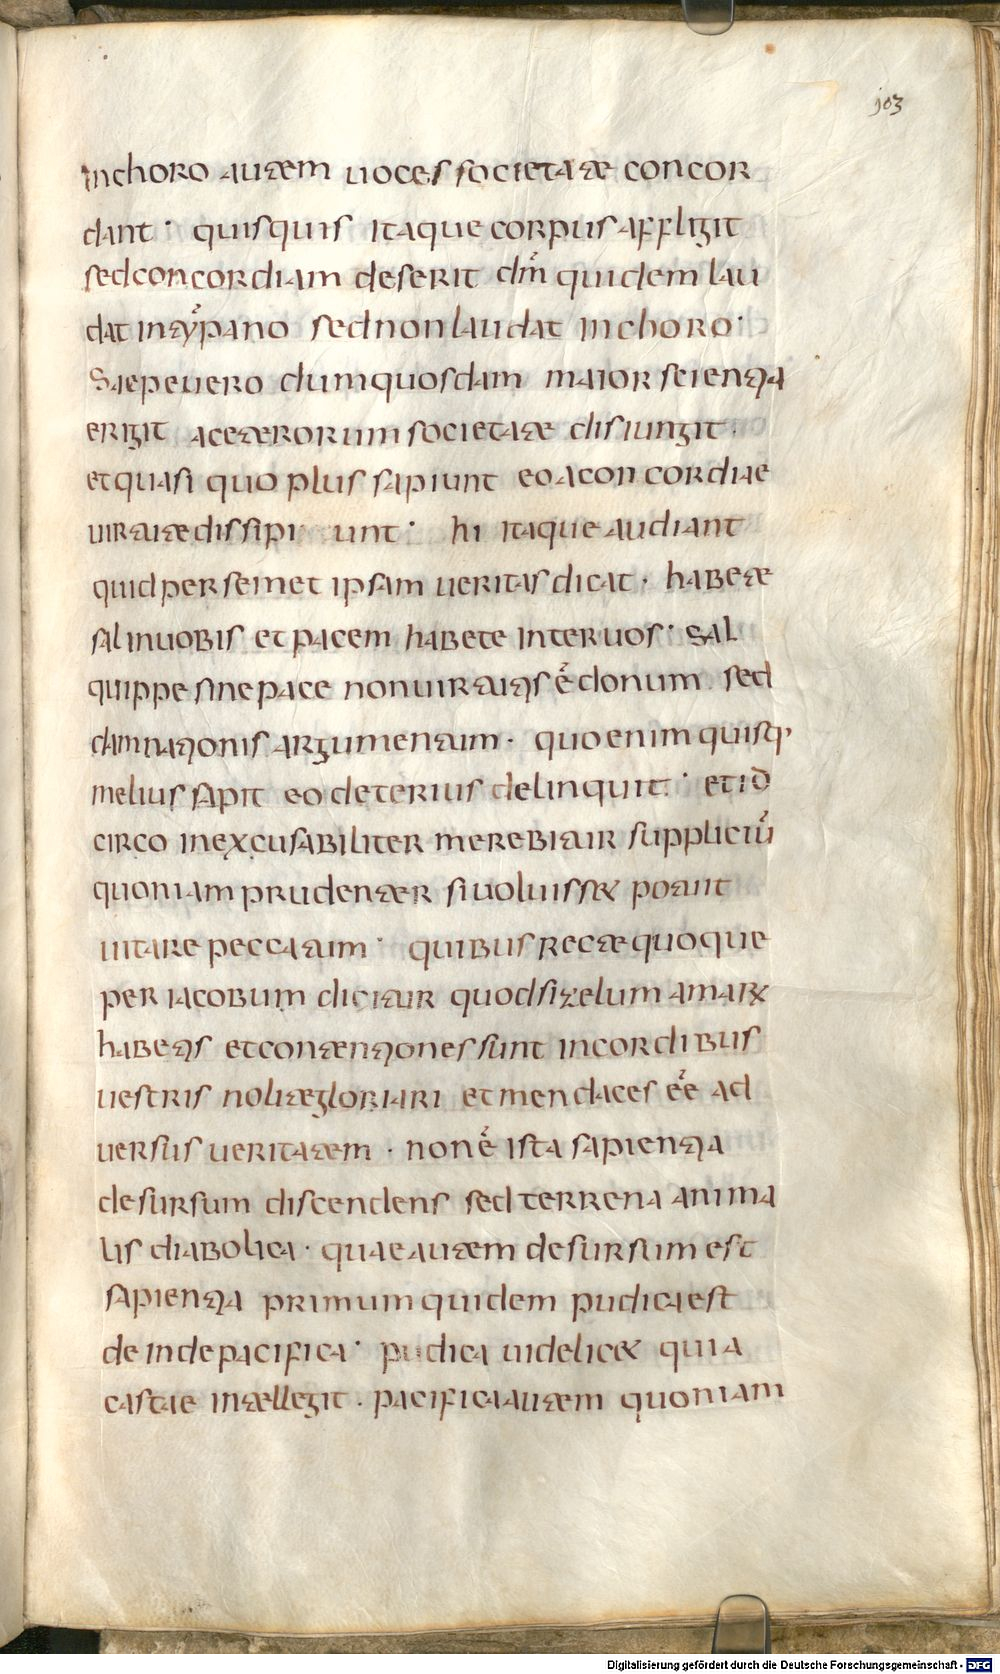 103
inchoro autem uoces societate concor
dant · quisquis itaque corpus affligit
sed concordiam deserit dm̄ quidem lau
dat in ty̅pano sed non laudat in choro ·
Saepe uero dum quosdam maior scientia
erigit a ceterorum societate disiungit .
et quasi quo plus sapiunt eo a concordiae
uirtute dissipi unt · hi itaque audiant
quid per semet ipsam ueritas dicat · habete
sal in uobis et pacem habete inter uos · sal
quippe sine pace non uirtutis ē donum . sed
damnationis argumentum · quo enim quisq·
melius sapit eo deterius delinquit · et id
circo inexcusabiliter merebitur suppliciū
quoniam prudenter si uoluisset potuit
uitare peccatum · quibus recte quoque
per iacobum dicitur quod si zelum amarum
habetis et contentiones sunt in cordibus
uestris nolite gloriari et mendaces eē ad
uersus ueritatem · non ē ista sapientia
desursum discendens sed terrena anima
lis diabolica · quae autem desursum est
sapientia primum quidem pudica est
deinde pacifica · pudica uidelicet quia
castae intellegit · pacifica autem quoniam
Digitalisierung gefördert durch die Deutsche Forschungsgemeinschaft - DFG